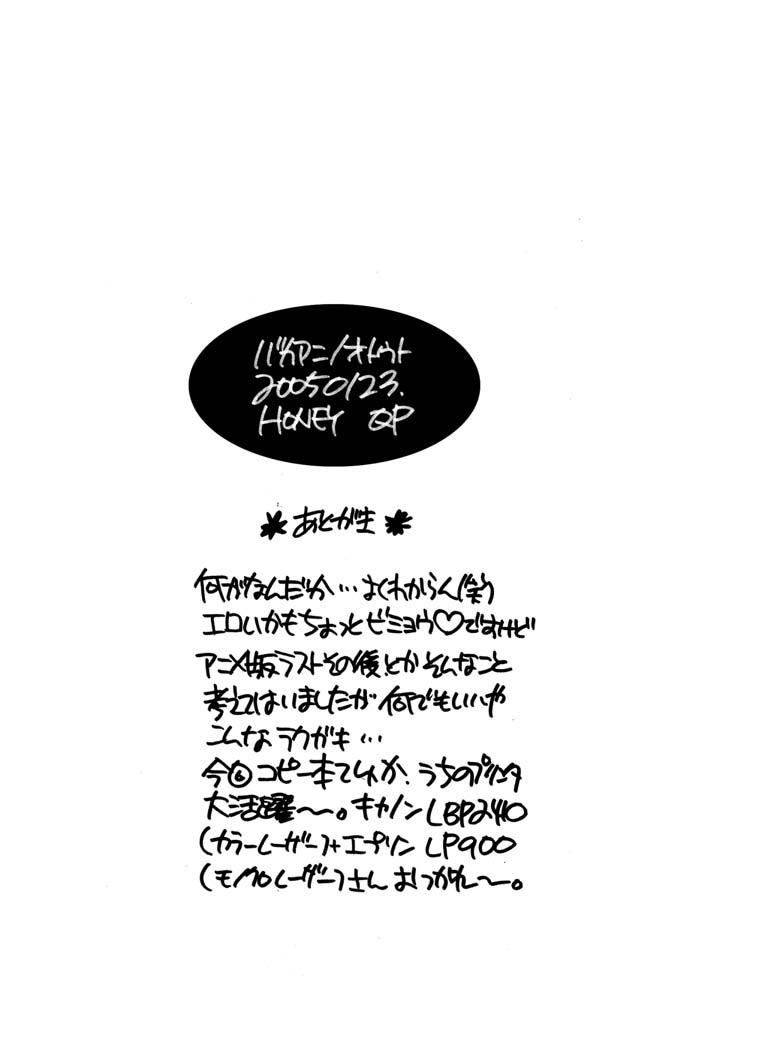 バカアニ/オトウト
20050123.
HONEY QP
*あとがき*
何がなんだか…よくわからん(笑)
エロいかもちょっとビミョウ♡ですけど
アニメ版ラストその後とかそんなこと
考えてはいましたが何でもいいや
こんなラクガキ…
今コピー本てしか、うちのプリンタ
大活躍〜。キャノンLBP2410
(カラーレーザー)+エプソンLP900
(モノクロレーザー)さんおつかれ〜。